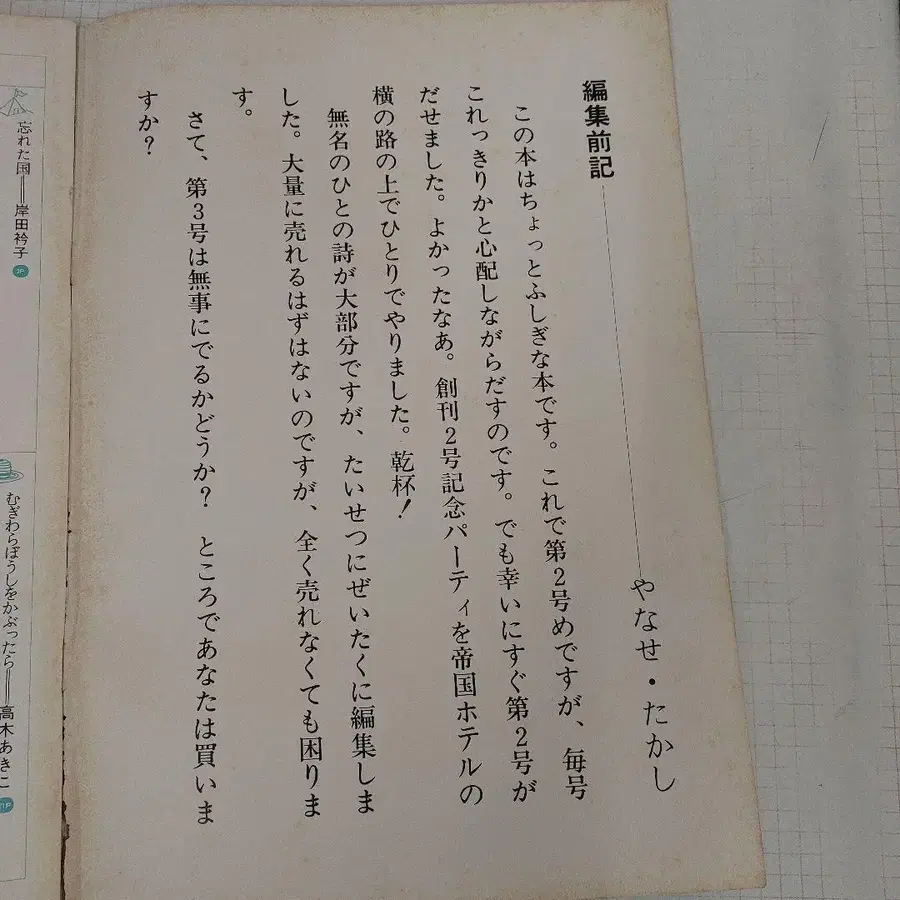 編集前記――やなせ・たかし
この本はちょっとふしぎな本です。これで第2号めですが、毎号
これっきりかと心配しながらだすのです。でも幸いにすぐ第2号が
だせました。よかったなあ。創刊2号記念パーティを帝国ホテルの
横の路の上でひとりでやりました。乾杯!
無名のひとの詩が大部分ですが、たいせつにぜいたくに編集しま
した。大量に売れるはずはないのですが、全く売れなくても困りま
す。
さて、第3号は無事にでるかどうか? ところであなたは買いま
すか?
忘れた国――岸田衿子
むぎわらぼうしをかぶったら――高木あきこ